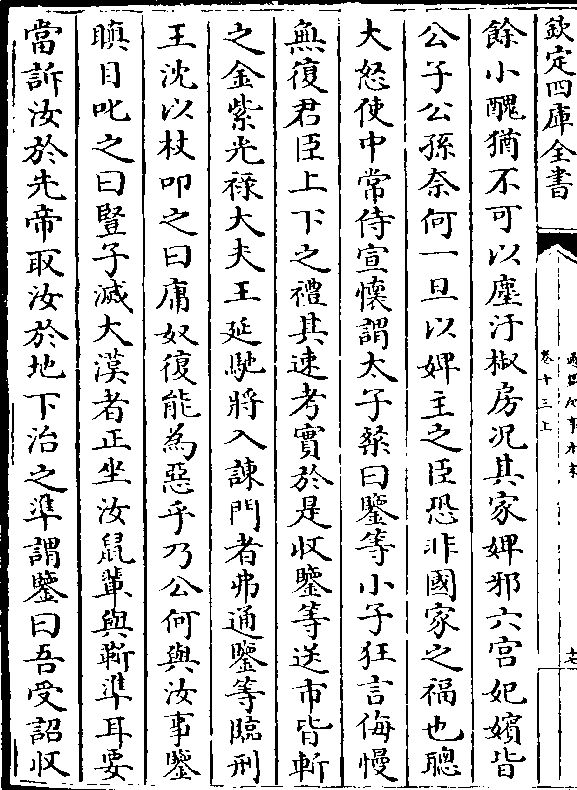 欽定四庫全書
卷十三上
餘小醜猶不可以塵汙椒房況其家婢邪六宮妃嬪皆
公子公孫奈何一旦以婢主之臣恐非國家之福也聰
大怒使中常侍宣懷謂太子粲曰鑒等小子狂言侮慢
無復君臣上下之禮其速考實於是收鑒等送市皆斬
之金紫光祿大夫王延馳將入諫門者弗通鑒等臨刑
王沈以杖叩之曰庸奴復能為惡乎乃公何與汝事鑒
瞋目叱之曰豎子滅大漢者正坐汝鼠輩與靳準耳要
當訴汝於先帝取汝於地下治之準謂鑒曰吾受詔收